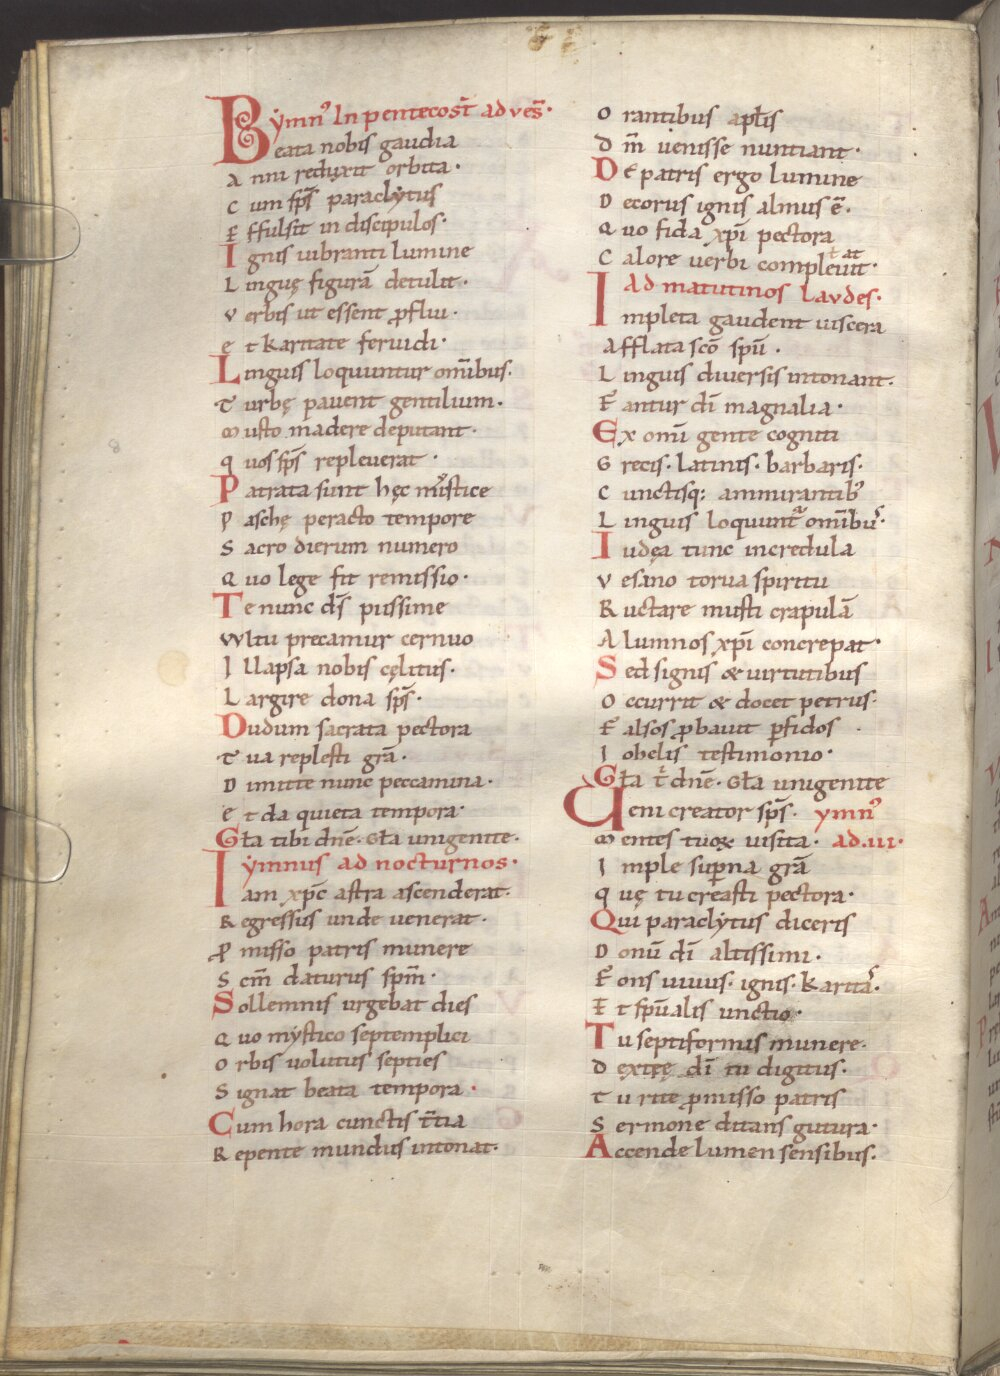 Ymn᷒ In pentecost̄ ad ves̄.
Beata nobis gaudia
Anni reduxit orbita.
Cum sp̄s paraclẏtus
Effulsit in discipulos.
Ignis uibranti lumine
Linguę figurā detulit.
Verbis ut essent ꝓflui.
et karitate feruidi.
Linguis loquuntur om̄ibus.
Turbę pauent gentilium.
Musto madere deputant.
quos sp̄s repleuerat.
Patrata sunt hęc mẏstice
Paschę peracto tempore
Sacro dierum numero
Quo lege fit remissio.
Te nunc d̄s piissime
Wltu precamur cernuo
Illapsa nobis cęlitus.
Largire dona sp̄s.
Dudum sacrata pectora
Tua replesti gr̄a.
Dimitte nunc peccamina.
et da quieta tempora.
Gła tibi dn̄e. Gła unigenite.
Ymnus ad nocturnos.
Iam xp̄c astra ascenderat.
Regressus unde uenerat.
Ꝓmisso patris munere
Scm̄ daturus spm̄.
Sollemnis urgebat dies
Quo mẏstico septemplici
Orbis uolutus septies
Signat beata tempora.
Cum hora cunctis t̄tia
Repente mundus intonat.
Orantibus apłis
Dm̄ uenisse nuntiant.
De patris ergo lumine
Decorus ignis almus ē.
Quo fida xp̄i pectora
Calore uerbi compleuit. ł at
Ad matutinos Laudes.
Impleta gaudent uiscera
Afflata sc̄o sp̄u.
Linguis diuersis intonant.
Fantur dī magnalia.
Ex om̄i gente cogniti
Grecis. Latinis. barbaris.
Cunctisq; ammirantib᷒
Linguis loquunt᷑ om̄ibu᷒.
Iudęa tunc incredula
Vesano torua spiritu
Ructare musti crapulā
Alumnos xp̄i concrepat.
Sed signis & uirtutibus
Occurrit & docet petrus.
Falsos ꝓbauit ꝑfidos
Iohelis testimonio.
Gła t̄ dn̄e. Gła unigenite
Veni creator sp̄s. ymn᷒
Mentes tuoꝝ uisita. ad .iii.
Imple suꝑna gr̄a
quę tu creasti pectora.
Qui paraclẏtus diceris
Donū dī altissimi.
Fons uiuus. ignis. karita᷒.
Et sp̄ualis unctio.
Tu septiformis munere.
dextęę dī tu digitus.
Tu rite ꝓmisso patris
Sermone ditans gutura.
Accende lumen sensibus.